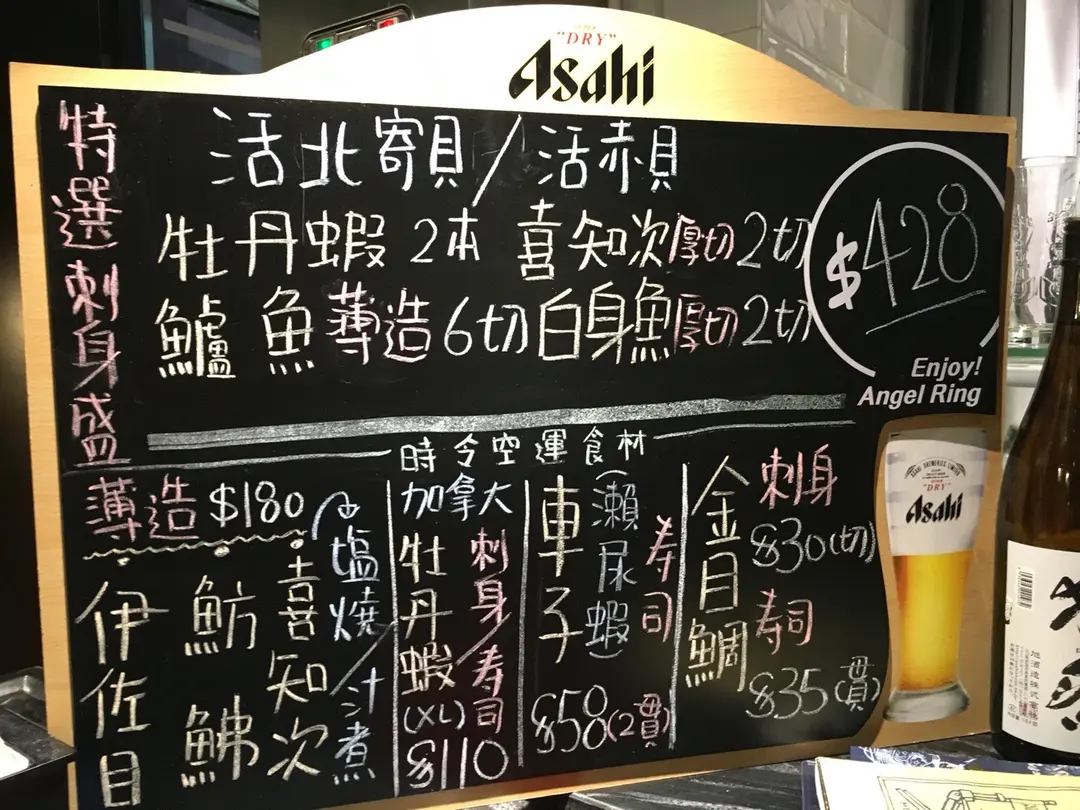 "DRY"
Asahi
特選刺身盛
活北寄貝/活赤貝
牡丹蝦2本 喜知次厚切2切
鱸魚薄造6切白身魚厚切2切
$428
Enjoy!
Angel Ring
時令空運食材
薄造 $180
伊佐目
魴鮄
喜喜知次
塩燒/汁煮
加拿大
牡丹蝦
(XL)
刺身/寿司
$110
車子
(瀨尿蝦)
寿司
$50(2貫)
金目鯛
刺身
$30(切)
寿司
$35(貫)
ASAHI BREWERIES LIMITED
"DRY"
Asahi
旭酒造株式会社